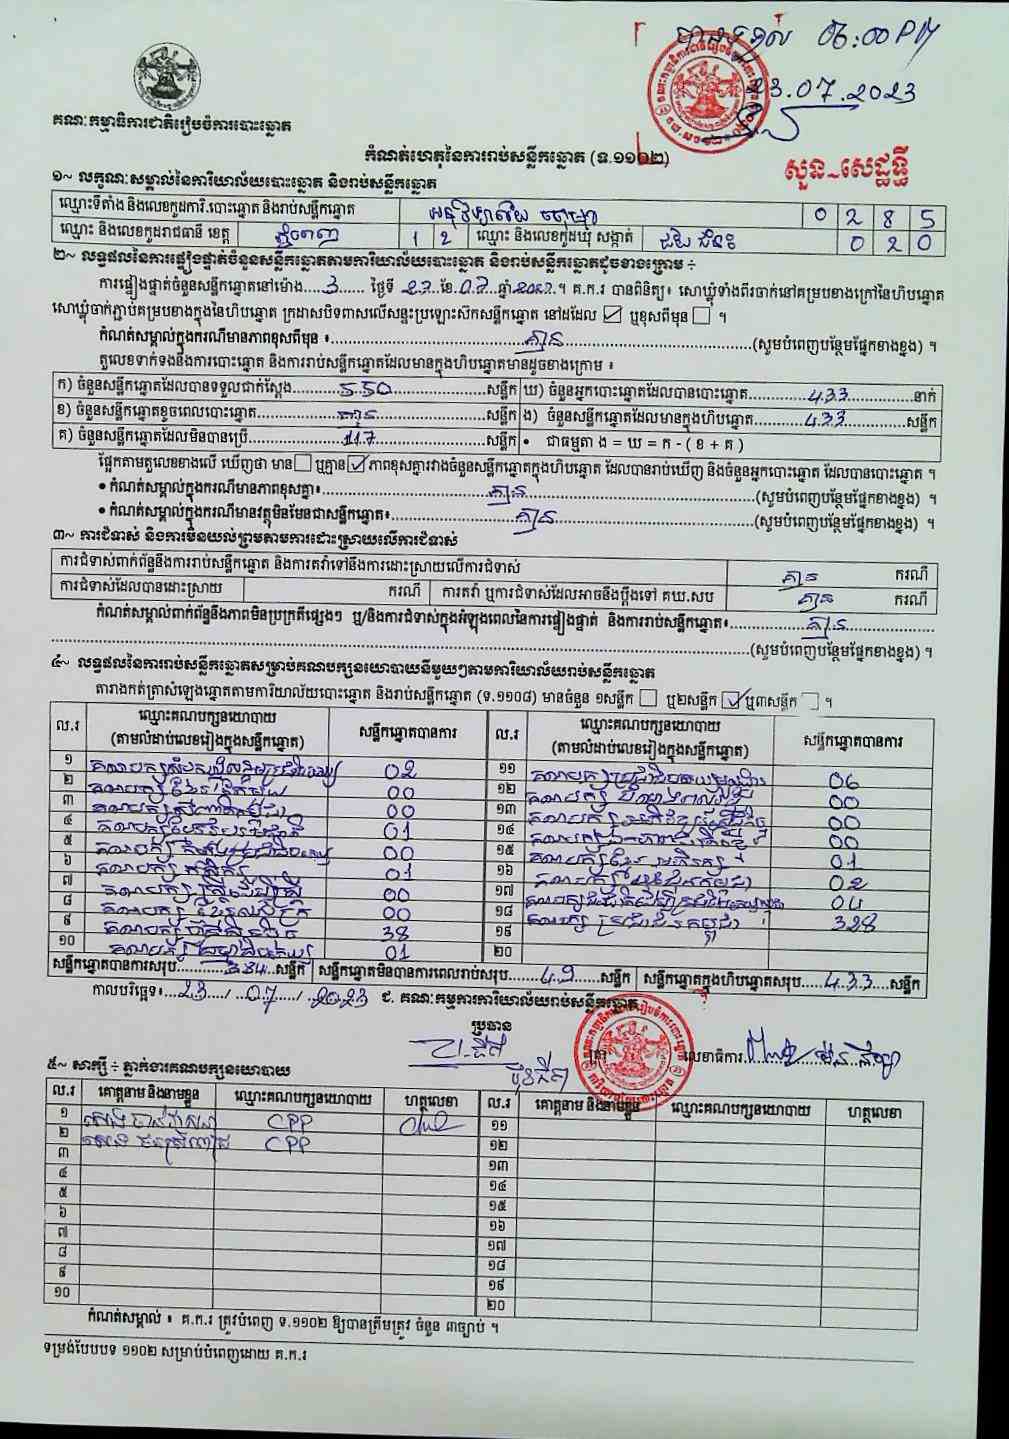 បានទទួល 06:00 PM
23.07.2023
គណៈកម្មាធិការជាតិរៀបចំការបោះឆ្នោត
កំណត់ហេតុនៃការរាប់សន្លឹកឆ្នោត (ទ.១១០២)
សួន~សេដ្ឋទ្ធី
១~ លក្ខណៈសម្គាល់នៃការិយាល័យបោះឆ្នោត និងរាប់សន្លឹកឆ្នោត
ឈ្មោះទីតាំង និងលេខកូដការិ.បោះឆ្នោត និងរាប់សន្លឹកឆ្នោត អនុវិទ្យាល័យ 0 2 8 5
ឈ្មោះ និងលេខកូដរាជធានី ខេត្ត ភ្នំពេញ 1 2 ឈ្មោះ និងលេខកូដឃុំ សង្កាត់ 0 2 0
២~ លទ្ធផលនៃការផ្ទៀងផ្ទាត់ចំនួនសន្លឹកឆ្នោតតាមការិយាល័យបោះឆ្នោត និងរាប់សន្លឹកឆ្នោតដូចខាងក្រោម ÷
ការផ្ទៀងផ្ទាត់ចំនួនសន្លឹកឆ្នោតនៅម៉ោង....3..... ថ្ងៃទី 23 ខែ 07 ឆ្នាំ 2023។ គ.ក.រ បានពិនិត្យ៖ សោឃ្លុំទាំងពីរចាក់នៅគម្របខាងក្រៅនៃហិបឆ្នោត
សោឃ្លុំចាក់ភ្ជាប់គម្របខាងក្នុងនៃហិបឆ្នោត ក្រដាសបិទពាសលើសន្ទះប្រឡោះស៊កសន្លឹកឆ្នោត នៅដដែល ☑ ឬខុសពីមុន ☐ ។
កំណត់សម្គាល់ក្នុងករណីមានភាពខុសពីមុន ៖ គ្មាន (សូមបំពេញបន្ថែមផ្នែកខាងខ្នង) ។
តួលេខទាក់ទងនឹងការបោះឆ្នោត និងការរាប់សន្លឹកឆ្នោតដែលមានក្នុងហិបឆ្នោតមានដូចខាងក្រោម ៖
ក) ចំនួនសន្លឹកឆ្នោតដែលបានទទួលជាក់ស្តែង 550 សន្លឹក ឃ) ចំនួនអ្នកបោះឆ្នោតដែលបានបោះឆ្នោត 433 នាក់
ខ) ចំនួនសន្លឹកឆ្នោតខូចពេលបោះឆ្នោត គ្មាន សន្លឹក ង) ចំនួនសន្លឹកឆ្នោតដែលមានក្នុងហិបឆ្នោត 433 សន្លឹក
គ) ចំនួនសន្លឹកឆ្នោតដែលមិនបានប្រើ 117 សន្លឹក • ជាធម្មតា ង = ឃ = ក - ( ខ + គ )
ផ្អែកតាមតួលេខខាងលើ ឃើញថា មាន ☐ ឬគ្មាន ☑ ភាពខុសគ្នារវាងចំនួនសន្លឹកឆ្នោតក្នុងហិបឆ្នោត ដែលបានរាប់ឃើញ និងចំនួនអ្នកបោះឆ្នោត ដែលបានបោះឆ្នោត ។
• កំណត់សម្គាល់ក្នុងករណីមានភាពខុសគ្នា៖ គ្មាន (សូមបំពេញបន្ថែមផ្នែកខាងខ្នង) ។
• កំណត់សម្គាល់ក្នុងករណីមានវត្ថុមិនមែនជាសន្លឹកឆ្នោត៖ គ្មាន (សូមបំពេញបន្ថែមផ្នែកខាងខ្នង) ។
៣~ ការជំទាស់ និងការមិនយល់ព្រមតាមការដោះស្រាយលើការជំទាស់
ការជំទាស់ពាក់ព័ន្ធនឹងការរាប់សន្លឹកឆ្នោត និងការតវ៉ាទៅនឹងការដោះស្រាយលើការជំទាស់ គ្មាន ករណី
ការជំទាស់ដែលបានដោះស្រាយ ករណី ការតវ៉ា ឬការជំទាស់ដែលអាចនឹងប្តឹងទៅ គឃ.សប គ្មាន ករណី
កំណត់សម្គាល់ពាក់ព័ន្ធនឹងភាពមិនប្រក្រតីផ្សេងៗ ឬ/និងការជំទាស់ក្នុងអំឡុងពេលនៃការផ្ទៀងផ្ទាត់ និងការរាប់សន្លឹកឆ្នោត៖ គ្មាន
(សូមបំពេញបន្ថែមផ្នែកខាងខ្នង) ។
៤~ លទ្ធផលនៃការរាប់សន្លឹកឆ្នោតសម្រាប់គណបក្សនយោបាយនីមួយៗតាមការិយាល័យរាប់សន្លឹកឆ្នោត
តារាងកត់ត្រាសំឡេងឆ្នោតតាមការិយាល័យបោះឆ្នោត និងរាប់សន្លឹកឆ្នោត (ទ.១១០៨) មានចំនួន ១សន្លឹក ☐ ឬ២សន្លឹក ☑ ឬ៣សន្លឹក ☐ ។
ល.រ ឈ្មោះគណបក្សនយោបាយ (តាមលំដាប់លេខរៀងក្នុងសន្លឹកឆ្នោត) សន្លឹកឆ្នោតបានការ ល.រ ឈ្មោះគណបក្សនយោបាយ (តាមលំដាប់លេខរៀងក្នុងសន្លឹកឆ្នោត) សន្លឹកឆ្នោតបានការ
១ គណបក្ស 02 ១១ គណបក្ស 06
២ គណបក្ស 00 ១២ គណបក្ស 00
៣ គណបក្ស 00 ១៣ គណបក្ស 00
៤ គណបក្ស 01 ១៤ គណបក្ស 00
៥ គណបក្ស 00 ១៥ គណបក្សខ្មែរ 01
៦ គណបក្ស កសិករ 01 ១៦ គណបក្ស 02
៧ គណបក្ស 00 ១៧ គណបក្ស 04
៨ គណបក្ស 00 ១៨ គណបក្ស ប្រជាជនកម្ពុជា 328
៩ គណបក្ស 38 ១៩
១០ គណបក្ស 01 ២០
សន្លឹកឆ្នោតបានការសរុប 384 សន្លឹក សន្លឹកឆ្នោតមិនបានការពេលរាប់សរុប 49 សន្លឹក សន្លឹកឆ្នោតក្នុងហិបឆ្នោតសរុប 433 សន្លឹក
កាលបរិច្ឆេទ៖ 23 / 07 / 2023 ជ. គណៈកម្មការការិយាល័យរាប់សន្លឹកឆ្នោត
ប្រធាន
លេខាធិការ
៥~ សាក្សី ÷ ភ្នាក់ងារគណបក្សនយោបាយ
ល.រ គោត្តនាម និងនាមខ្លួន ឈ្មោះគណបក្សនយោបាយ ហត្ថលេខា ល.រ គោត្តនាម និងនាមខ្លួន ឈ្មោះគណបក្សនយោបាយ ហត្ថលេខា
១ CPP ១១
២ CPP ១២
៣ ១៣
៤ ១៤
៥ ១៥
៦ ១៦
៧ ១៧
៨ ១៨
៩ ១៩
១០ ២០
កំណត់សម្គាល់ ៖ គ.ក.រ ត្រូវបំពេញ ទ.១១០២ ឱ្យបានត្រឹមត្រូវ ចំនួន ៣ច្បាប់ ។
ទម្រង់បែបបទ ១១០២ សម្រាប់បំពេញដោយ គ.ក.រ